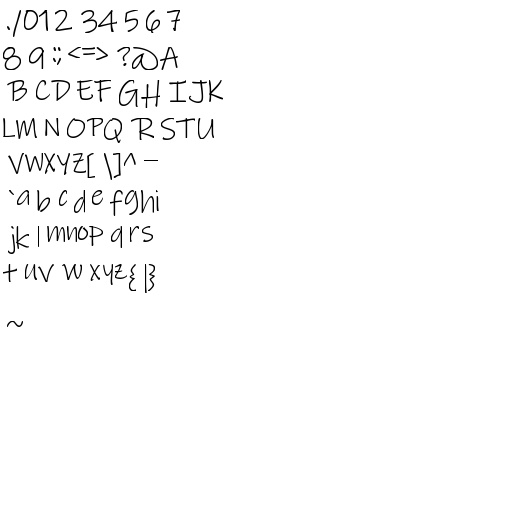 ./012 34 5 6 7
8 9 :; <=> ?@A
B C D E F G H I J K
L M N O P Q R S T U
V W X Y Z [ \ ] ^ _
` a b c d e f g h i
j k l m n o p q r s
t u v w x y z { | }
~